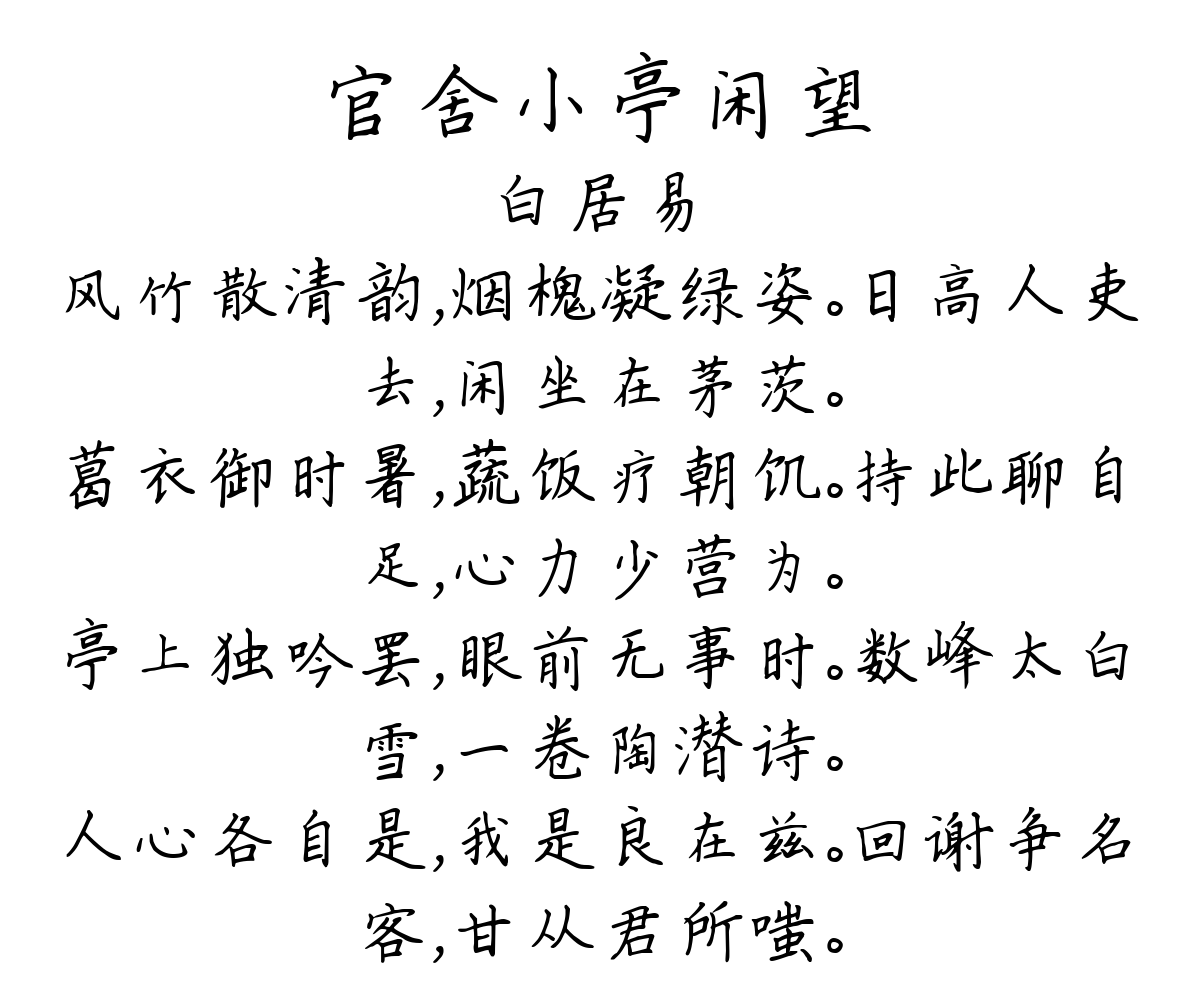 官舍小亭闲望
白居易
风竹散清韵,烟槐凝绿姿。日高人吏
去,闲坐在茅茨。
葛衣御时暑,蔬饭疗朝饥。持此聊自
足,心力少营为。
亭上独吟罢,眼前无事时。数峰太白
雪,一卷陶潜诗。
人心各自是,我是良在兹。回谢争名
客,甘从君所嗤。